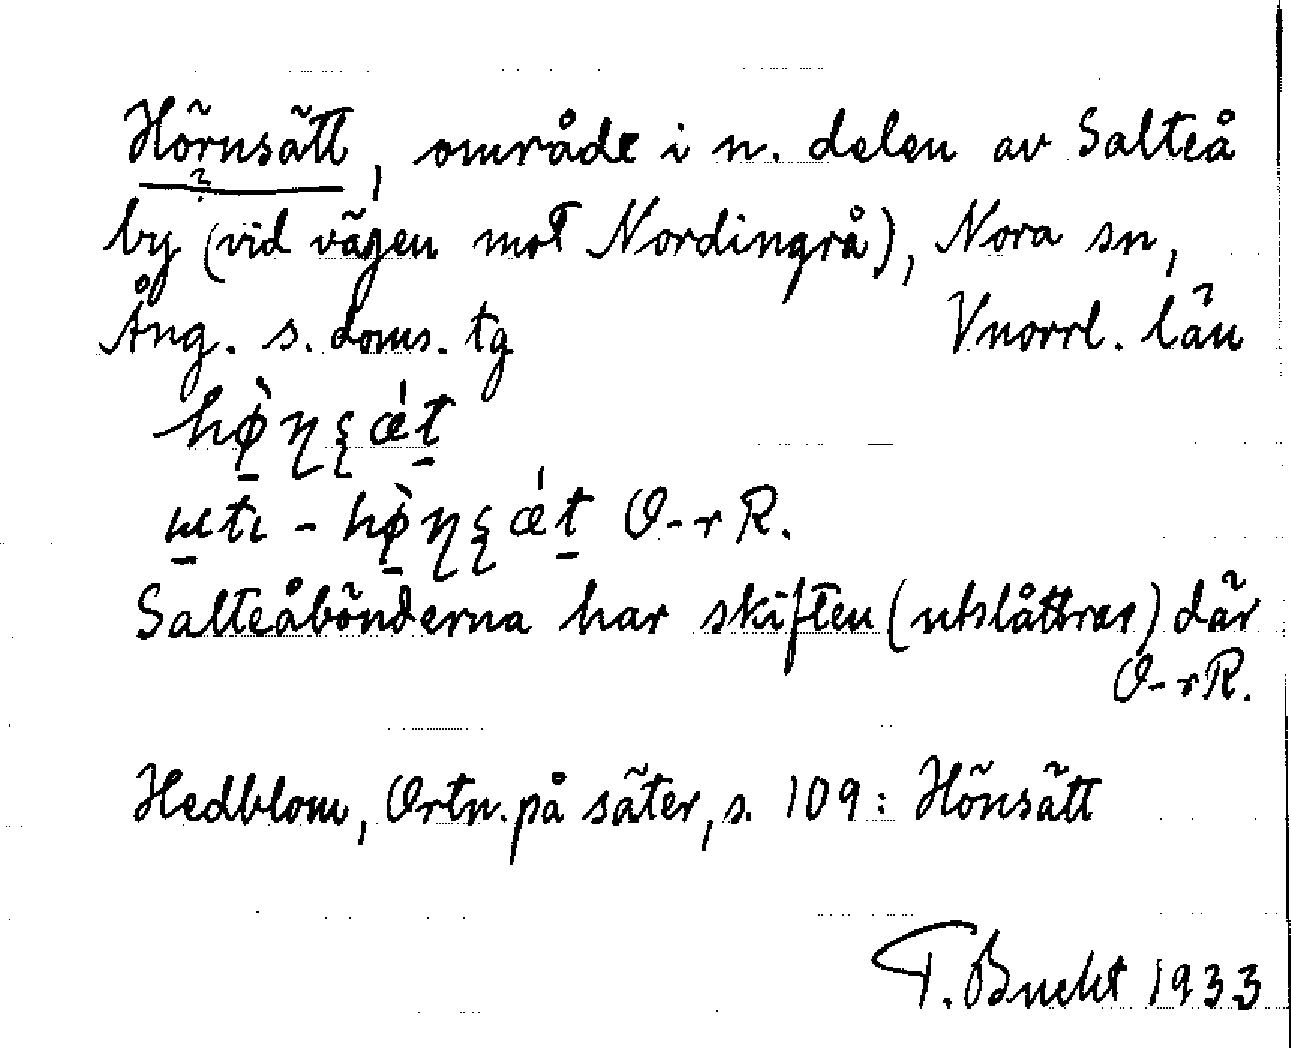 Hörnsätt, område i n. delen av Salteå
?
by (vid vägen mot Nordingrå), Nora sn,
Ång. s. doms. tg Vnorrl. län
O-r R.
Salteåbönderna har skiften (utslåttrar) där
O-r R.
Hedblom, Ortn. på säter, s. 109: Hönsätt
T. Bucht 1933